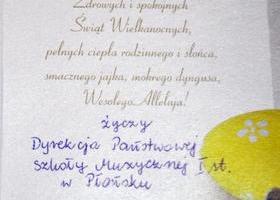 Zdrowych i spokojnych
Świąt Wielkanocnych,
pełnych ciepła rodzinnego i słońca,
smacznego jajka, mokrego dyngusa,
Wesołego Alleluja!
życzy
Dyrekcja Państwowej
Szkoły Muzycznej I st.
w Płońsku